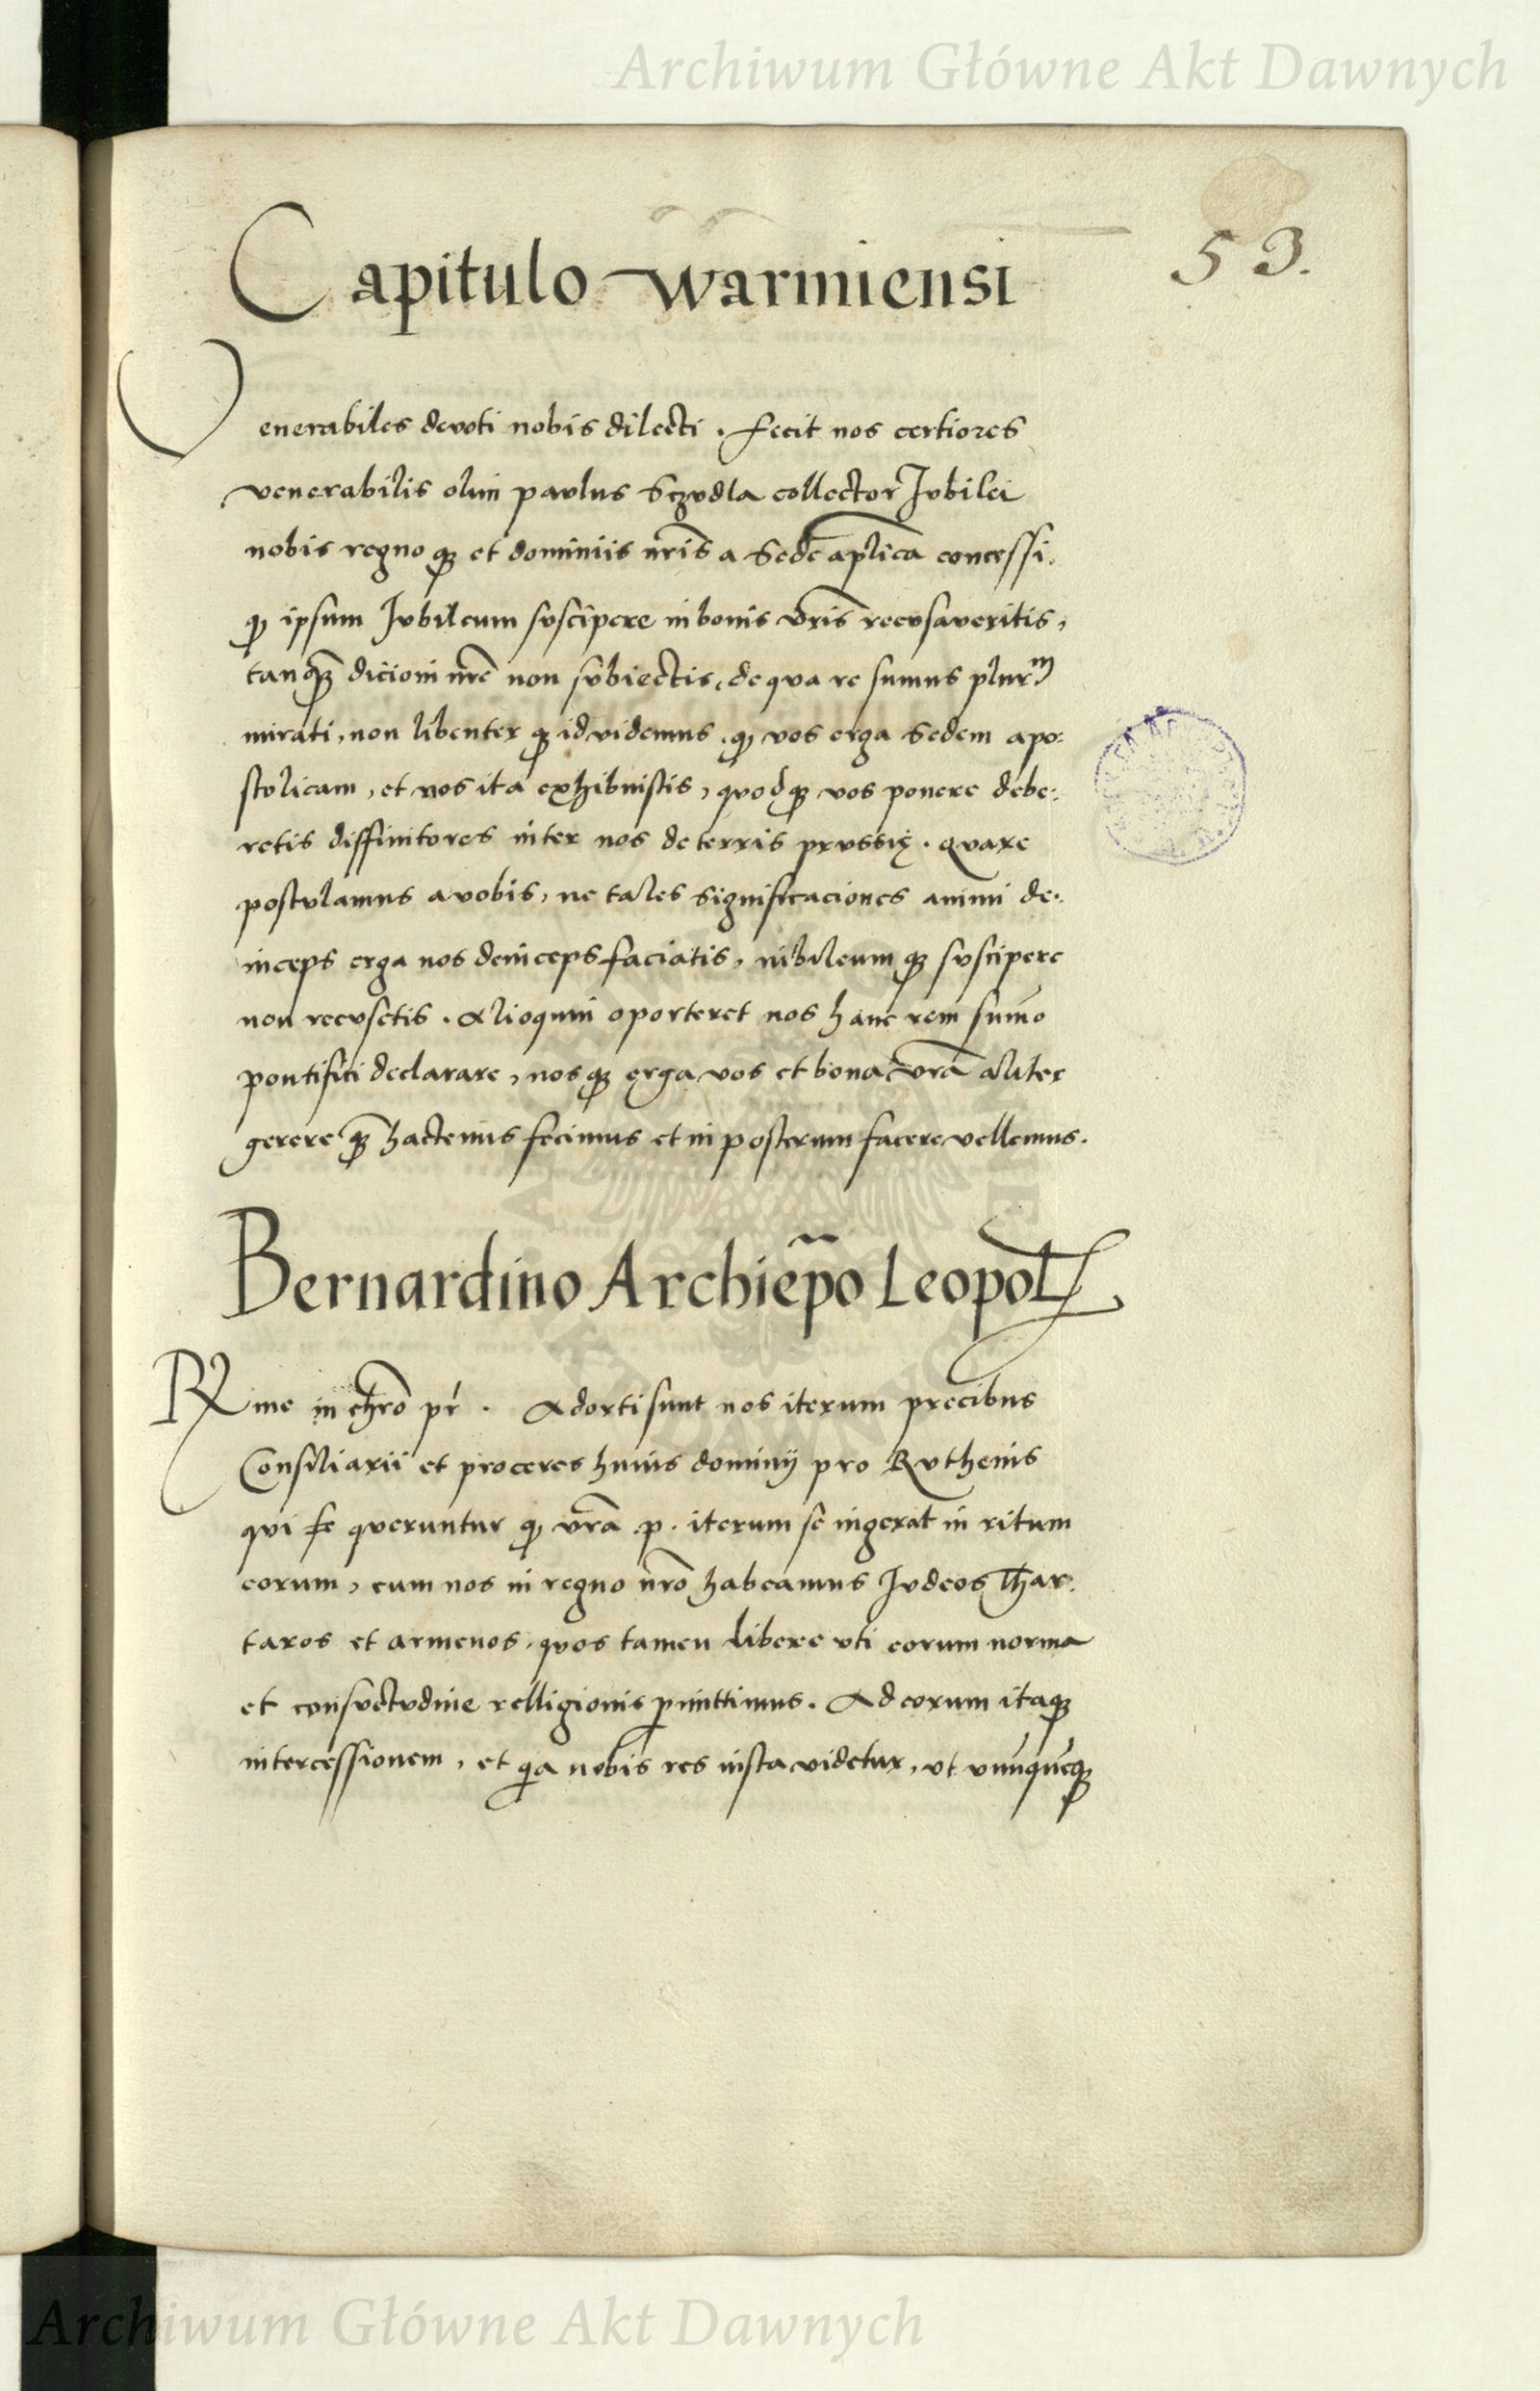 Archiwum Główne Akt Dawnych
53.
Capitulo warmiensi
Venerabiles devoti nobis dilecti . fecit nos certiores
venerabilis olim paulus Szvdla collector Jvbilei
nobis regno qз et dominiis nr̃is a Sede aplica concessi.
qꝫ ipsum Jvbileum svscipere in bonis vr̃is recvsaveritis,
tanqꝫ dicioni nr̃e non svbiectis, de qva re sumus plurᵐ
mirati, non libenter qꝫ id videmus . qꝫ vos erga Sedem apo:
stolicam, et nos ita exhibuistis, qvodqꝫ vos ponere debe:
retis diffinitores inter nos de terris prvssię . qvare
postvlamus a vobis, ne tales significaciones animi de:
inceps erga nos deinceps faciatis, iubileum qꝫ svscipere
non recvsetis . Alioquin oporteret nos hanc rem sum̃o
pontifici declarare, nos qꝫ erga vos et bona vr̃a aliter
gerere qꝫ̃ hactenus fecimus et in posterum facere vellemus.
Bernardino Archiep̃o Leopol
Rme in chr̃o pr̃ . Adorti sunt nos iterum precibus
Consiliarii et proceres huius dominij pro Rvthenis
qvi se qveruntur qꝫ vr̃a .p. iterum se ingerat in ritum
eorum, cum nos in regno nr̃o habeamus Jvdeos Thar:
taros et armenos, qvos tamen libere vti eorum norma
et consvetvdine relligionis ꝑmittimus . Ad eorum itaqꝫ
intercessionem, et qia nobis res iusta videtur, vt vnũqueqꝫ
Archiwum Główne Akt Dawnych